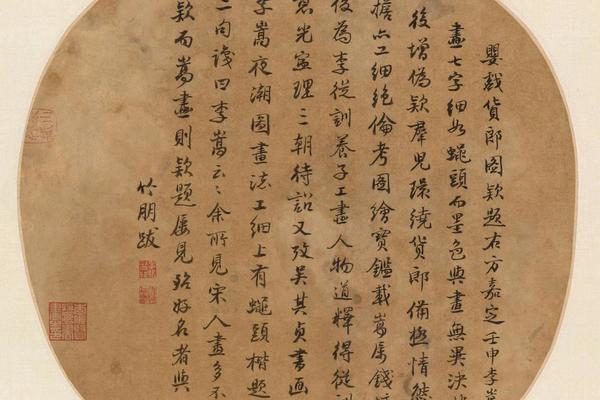 嬰戲貨郎圖款題右方嘉定壬申李嵩
畫七字細如蠅頭而墨色與畫無異決
後增偽款羣兒環繞貨郎備極情態
擔亦工細絕倫考圖繪寶鑑載嵩居錢
後為李從訓養子工畫人物道釋得從
意光寧理三朝待詔又攷吳其貞書画
李嵩夜潮圖畫法工細上有蠅頭楷題
二句識曰李嵩云々余所見宋人畫多不
款而嵩畫則款題屢見殆好名者與
竹朋跋